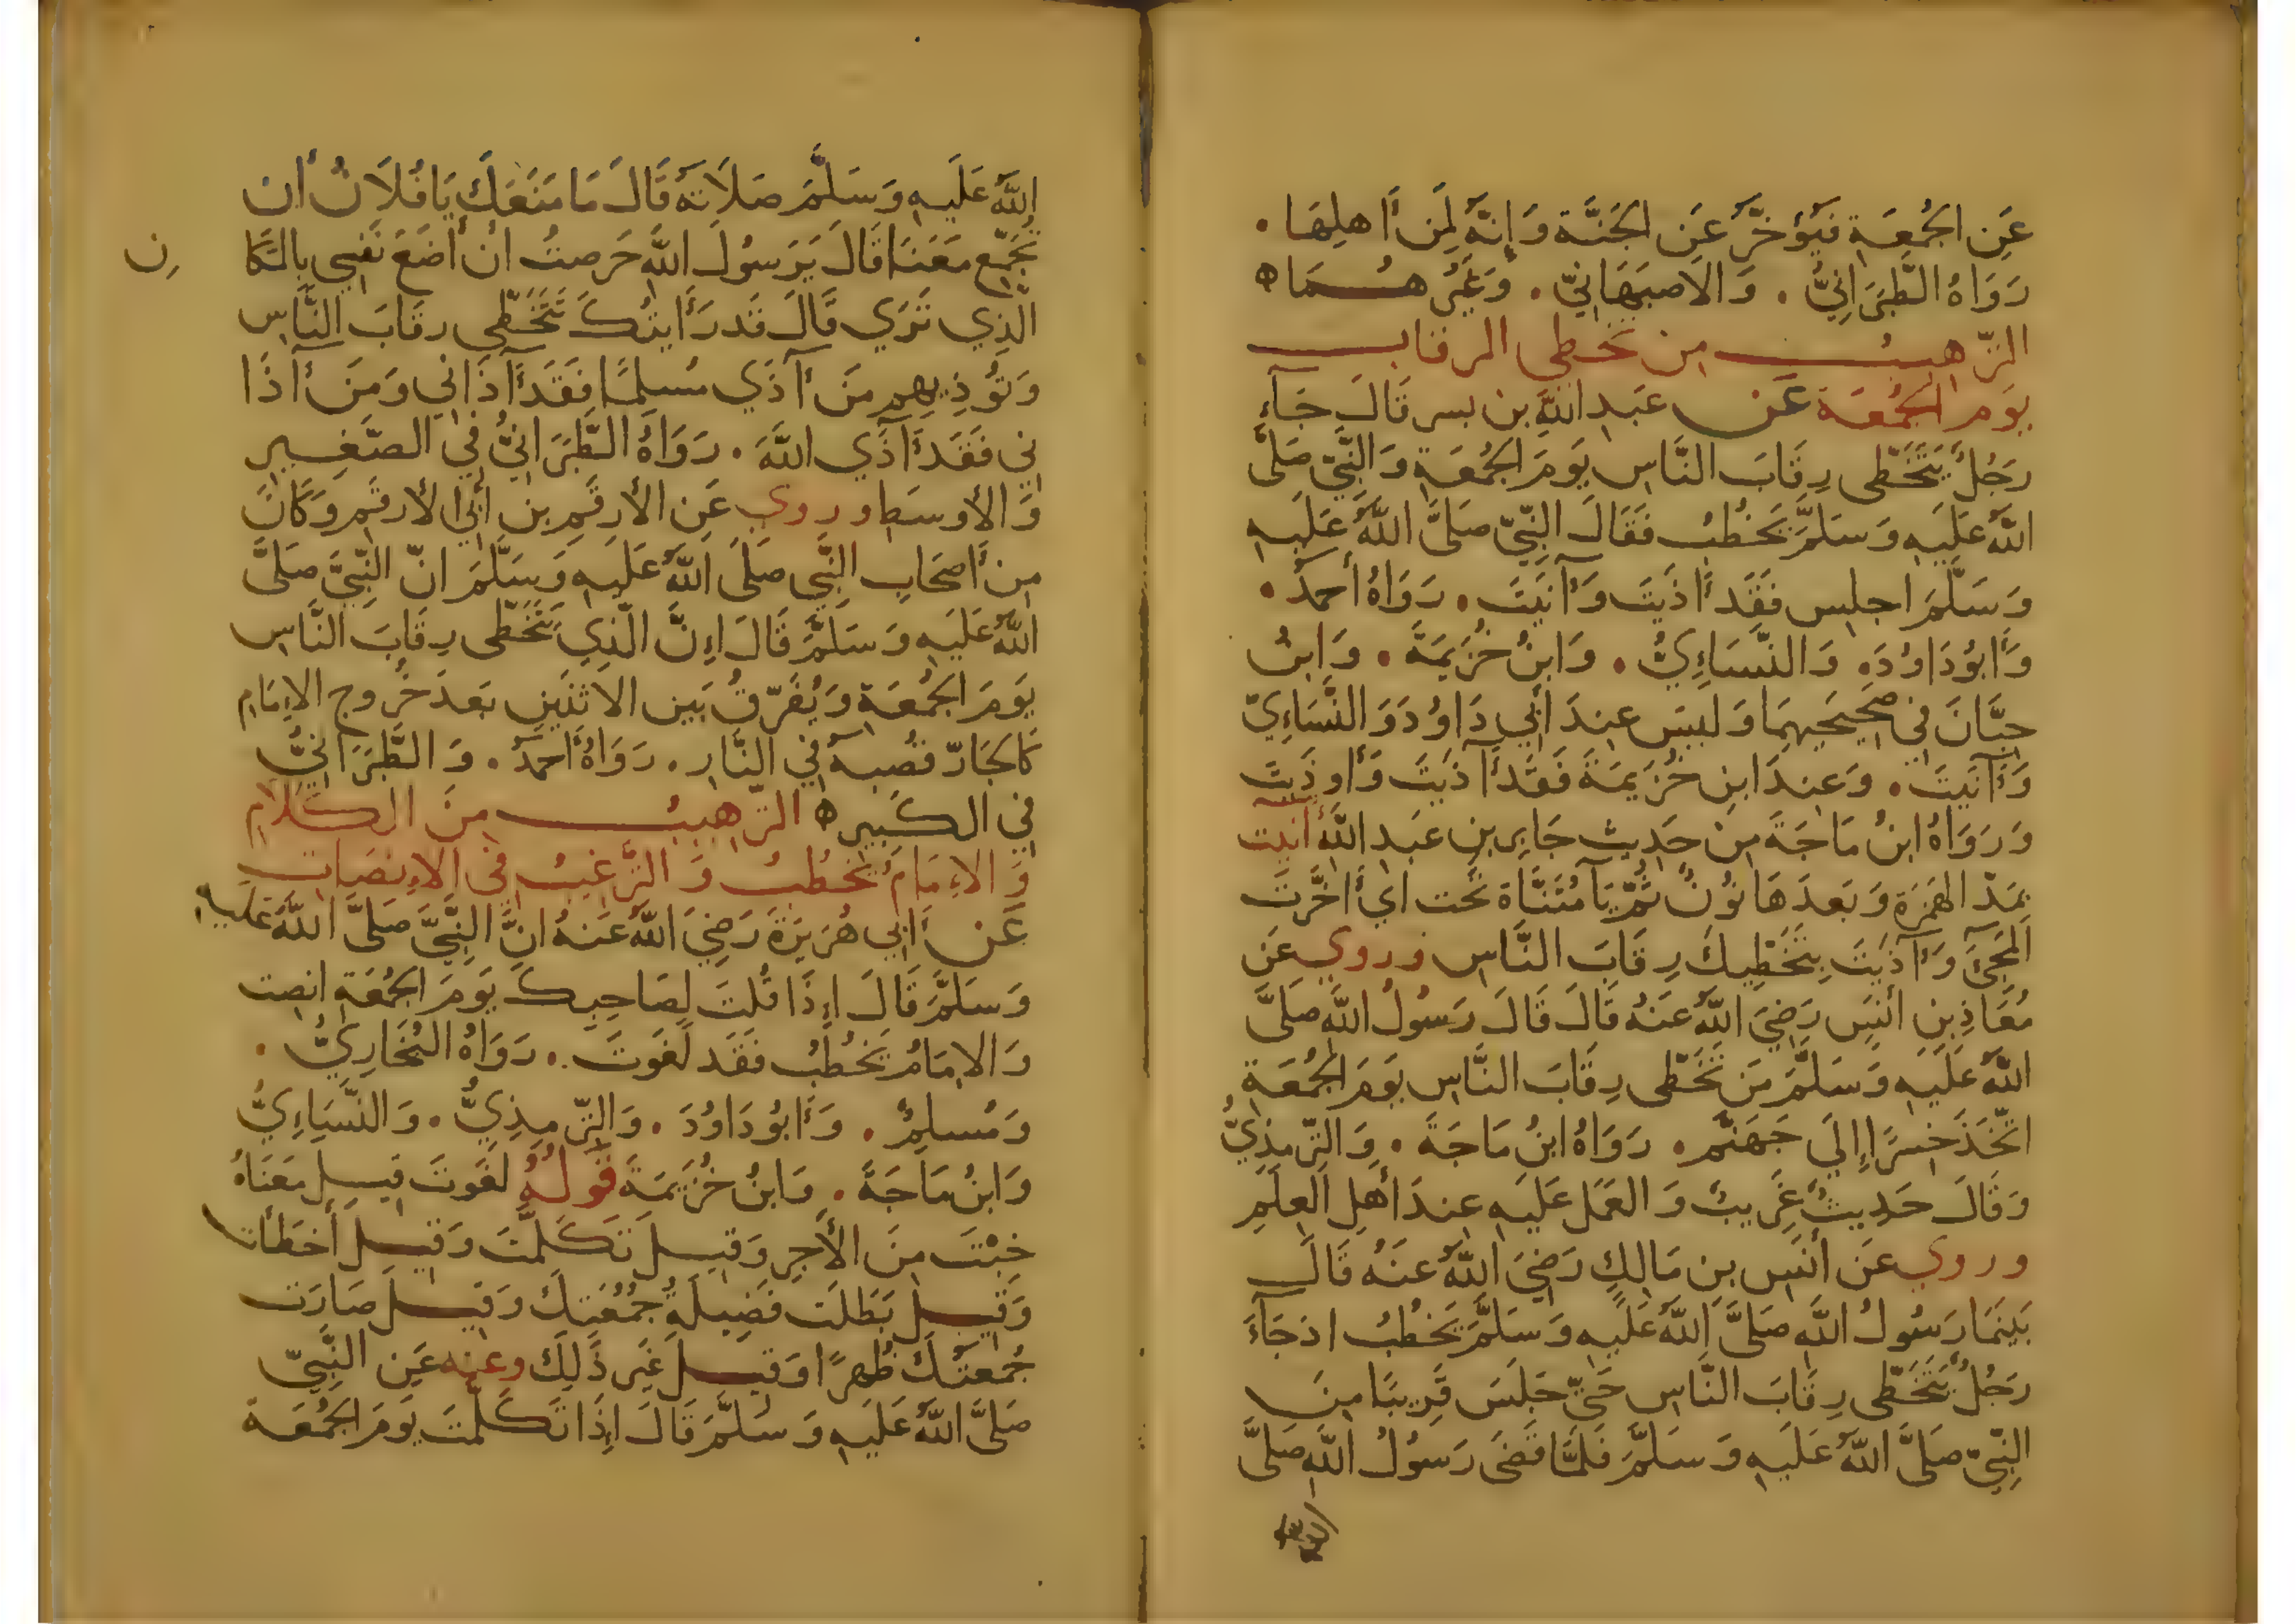 عَنِ الجُمُعَةِ فَيُؤَخَّرُ عَنِ الجَنَّة وَإِنَّهُ لَمِن أَهلِهَا .
رَوَاهُ الطَّبَرَانِيُّ . وَالاصبَهَانِيّ . وَغَيرُهُمَا ه
الترهيب من تخطى الرقاب
يوم الجُمُعَة عَن عَبدِ اللَّهِ بن بسر قَالَ جَآءَ
رَجُلٌ يَتَخَطَّى رِقَابَ النَّاسِ يَومَ الجُمُعَةِ وَالنَّبِيّ صَلَّى
اللَّهُ عَلَيهِ وَسَلَّمَ يَخطُبُ فَقَالَ النَّبِيّ صَلَّى اللَّهُ عَلَيهِ
وَسَلَّمَ اجلِس فَقَد أَاذَيتَ وَأآنَيتَ . رَوَاهُ أحمدُ .
وَأَبُو دَاوُدَ . وَالنَّسَاءِيُّ . وَابنُ خُزَيمَةَ . وَابنُ
حِبَّانَ فِي صَحِيحَيهِمَا وَلَيسَ عِندَ أَبِي دَاوُدَ وَالنَّسَاءِيّ
وَأآنَيتَ . وَعِندَ ابنِ خُزَيمَةَ فَقَد أآذَيتَ وَأُوذِيتَ
وَرَوَاهُ ابنُ مَاجَةَ مِن حَدِيثِ جَابِرِ بنِ عَبدِ اللَّهِ أآنيت
بِمَدّ الهَمزَةِ وَبَعدَهَا نُونٌ ثُمَّ يَآ مُثَنَّاة تَحت اي أَخَّرتَ
المَجِئَ وَأآذَيتَ بِتَخَطِّيكَ رِقَابَ النَّاسِ وروي عَن
مُعَاذِ بنِ أنَسٍ رَضِيَ اللَّهُ عَنهُ قَالَ قَالَ رَسُولُ اللَّهِ صَلَّى
اللَّهُ عَلَيهِ وَسَلَّمَ مَن تَخَطَّى رِقَابَ النَّاسِ يَومَ الجُمُعَةِ
اتَّخَذَ جِسرًا إِلَي جَهَنَّم . رَوَاهُ ابنُ مَاجَةَ . وَالتِّرمِذِيُّ
وَقَالَ حَدِيثٌ غَرِيبٌ وَالعَمَل عَلَيهِ عِندَ أَهلِ العِلمِ
وروي عَن أنَسِ بنِ مَالِكٍ رَضِيَ اللَّهُ عَنهُ قَالَ
بَينَمَا رَسُولُ اللَّهِ صَلَّى اللَّهُ عَلَيهِ وَسَلَّمَ يَخطُبُ اذ جَآءَ
رَجُلٌ يَتَخَطَّى رِقَابَ النَّاسِ حَتّي جَلَسَ قَرِيبًا مِنَ
النَّبِيّ صَلَّى اللَّهُ عَلَيهِ وَسَلَّمَ فَلَمَّا قَضَى رَسُولُ اللَّهِ صَلَّى
اللَّهُ عَلَيهِ وَسَلَّمَ صَلَاتَهُ قَالَ مَا مَنَعَكَ يَا فُلَانُ أَن
تُجَمِّعَ مَعَنَا قَالَ يَرَسُولَ اللَّهِ حَرَصتُ ان أَضَعَ نَفسِي بِالمَكَا
ن
الَّذِي تَرَي قَالَ قَد رَأَيتُكَ تَتَخَطَّى رِقَابَ النَّاسِ
وَتُؤذِيهِم مَن أآذَي مُسلِمًا فَقَد أآذَانِي وَمَن أآذَا
نِي فَقَد أآذَي اللَّهَ . رَوَاهُ الطَّبَرَانِيُّ فِي الصَّغِيرِ
وَالأوسَطِ وروي عَنِ الأرقَمِ بنِ أَبِي الأرقَمِ وَكَانَ
مِن أَصحَابِ النَّبِي صَلَى اللَّهُ عَلَيهِ وَسَلَّمَ انّ النَّبِيَّ صَلَّى
اللَّهُ عَلَيهِ وَسَلَّمَ قَالَ اِنَّ الَّذِي يَتَخَطَّى رِقَابَ النَّاسِ
يَومَ الجُمُعَةِ وَيُفَرِّقُ بَين الاثنَينِ بَعدَ خُرُوجِ الإِمَامِ
كَالجَارّ قُصبهُ فِي النَّارِ . رَوَاهُ أَحمَدُ . وَالطَّبَرَانِيُّ
فِي الكَبِيرِ ه الترهيبُ مِنَ الكَلَامِ
وَالاِمَامُ يَخطُبُ وَالتَّرغِيبُ فِي الاِنصَاتِ
عَن أَبِي هُرَيرَةَ رَضِيَ اللَّهُ عَنهُ انَّ النَّبِيَّ صَلَّى اللَّهُ عَلَيهِ
وَسَلَّمَ قَالَ اِذَا قُلتَ لِصَاحِبِكَ يَومَ الجُمُعَةِ انصِت
وَالاِمَامُ يَخطُبُ فَقَد لَغَوتَ . رَوَاهُ البُخَارِيُّ .
وَمُسلِمٌ . وَأَبُو دَاوُدَ . وَالتِّرمِذِيُّ . وَالنَّسَاءِيُّ
وَابنُ مَاجَةَ . وَابنُ خُزَيمَةَ قَولُهُ لَغَوتَ قِيلَ مَعنَاهُ
خِبتَ مِنَ الأَجرِ وَقِيلَ تَكَلَّمتَ وَقِيلَ أَخطَأتَ
وَقِيلَ بَطَلَت فَضِيلَةُ جُمُعَتِكَ وَقِيلَ صَارَت
جُمعَتُكَ ظُهرًا وَقِيلَ غَيرَ ذَلِكَ وعنه عَنِ النَّبِيّ
صَلَّى اللَّهُ عَلَيهِ وَسَلَّمَ قَالَ اِذَا تَكَلَّمتَ يَومَ الجُمُعَة